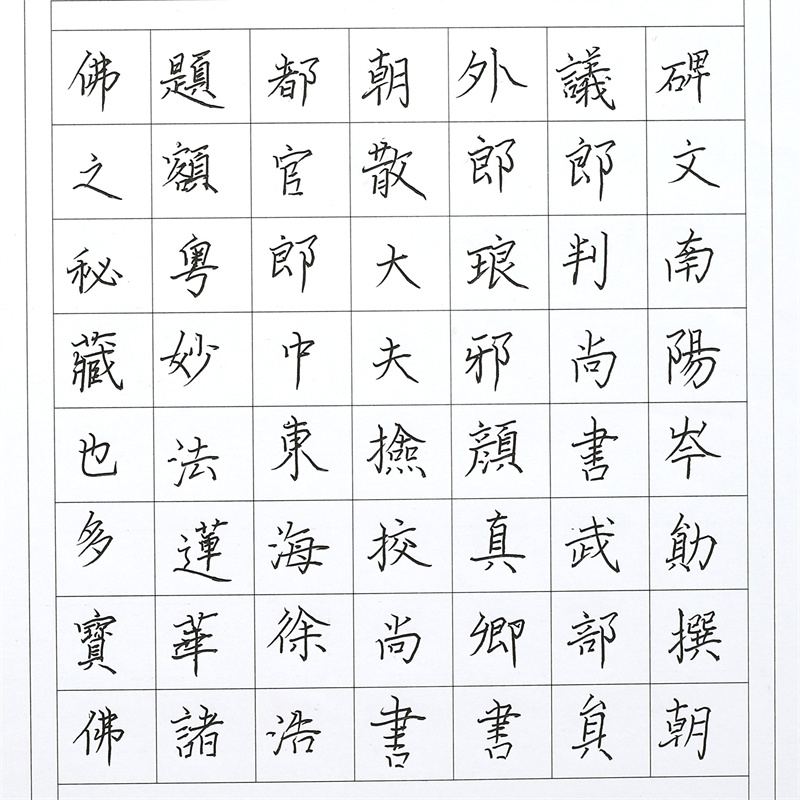 碑文南陽岑勛撰朝
議郎判尚書武部員
外郎琅邪顔真卿書
朝散大夫撿挍尚書
都官郎中東海徐浩
題額粤妙法蓮華諸
佛之秘藏也多寶佛